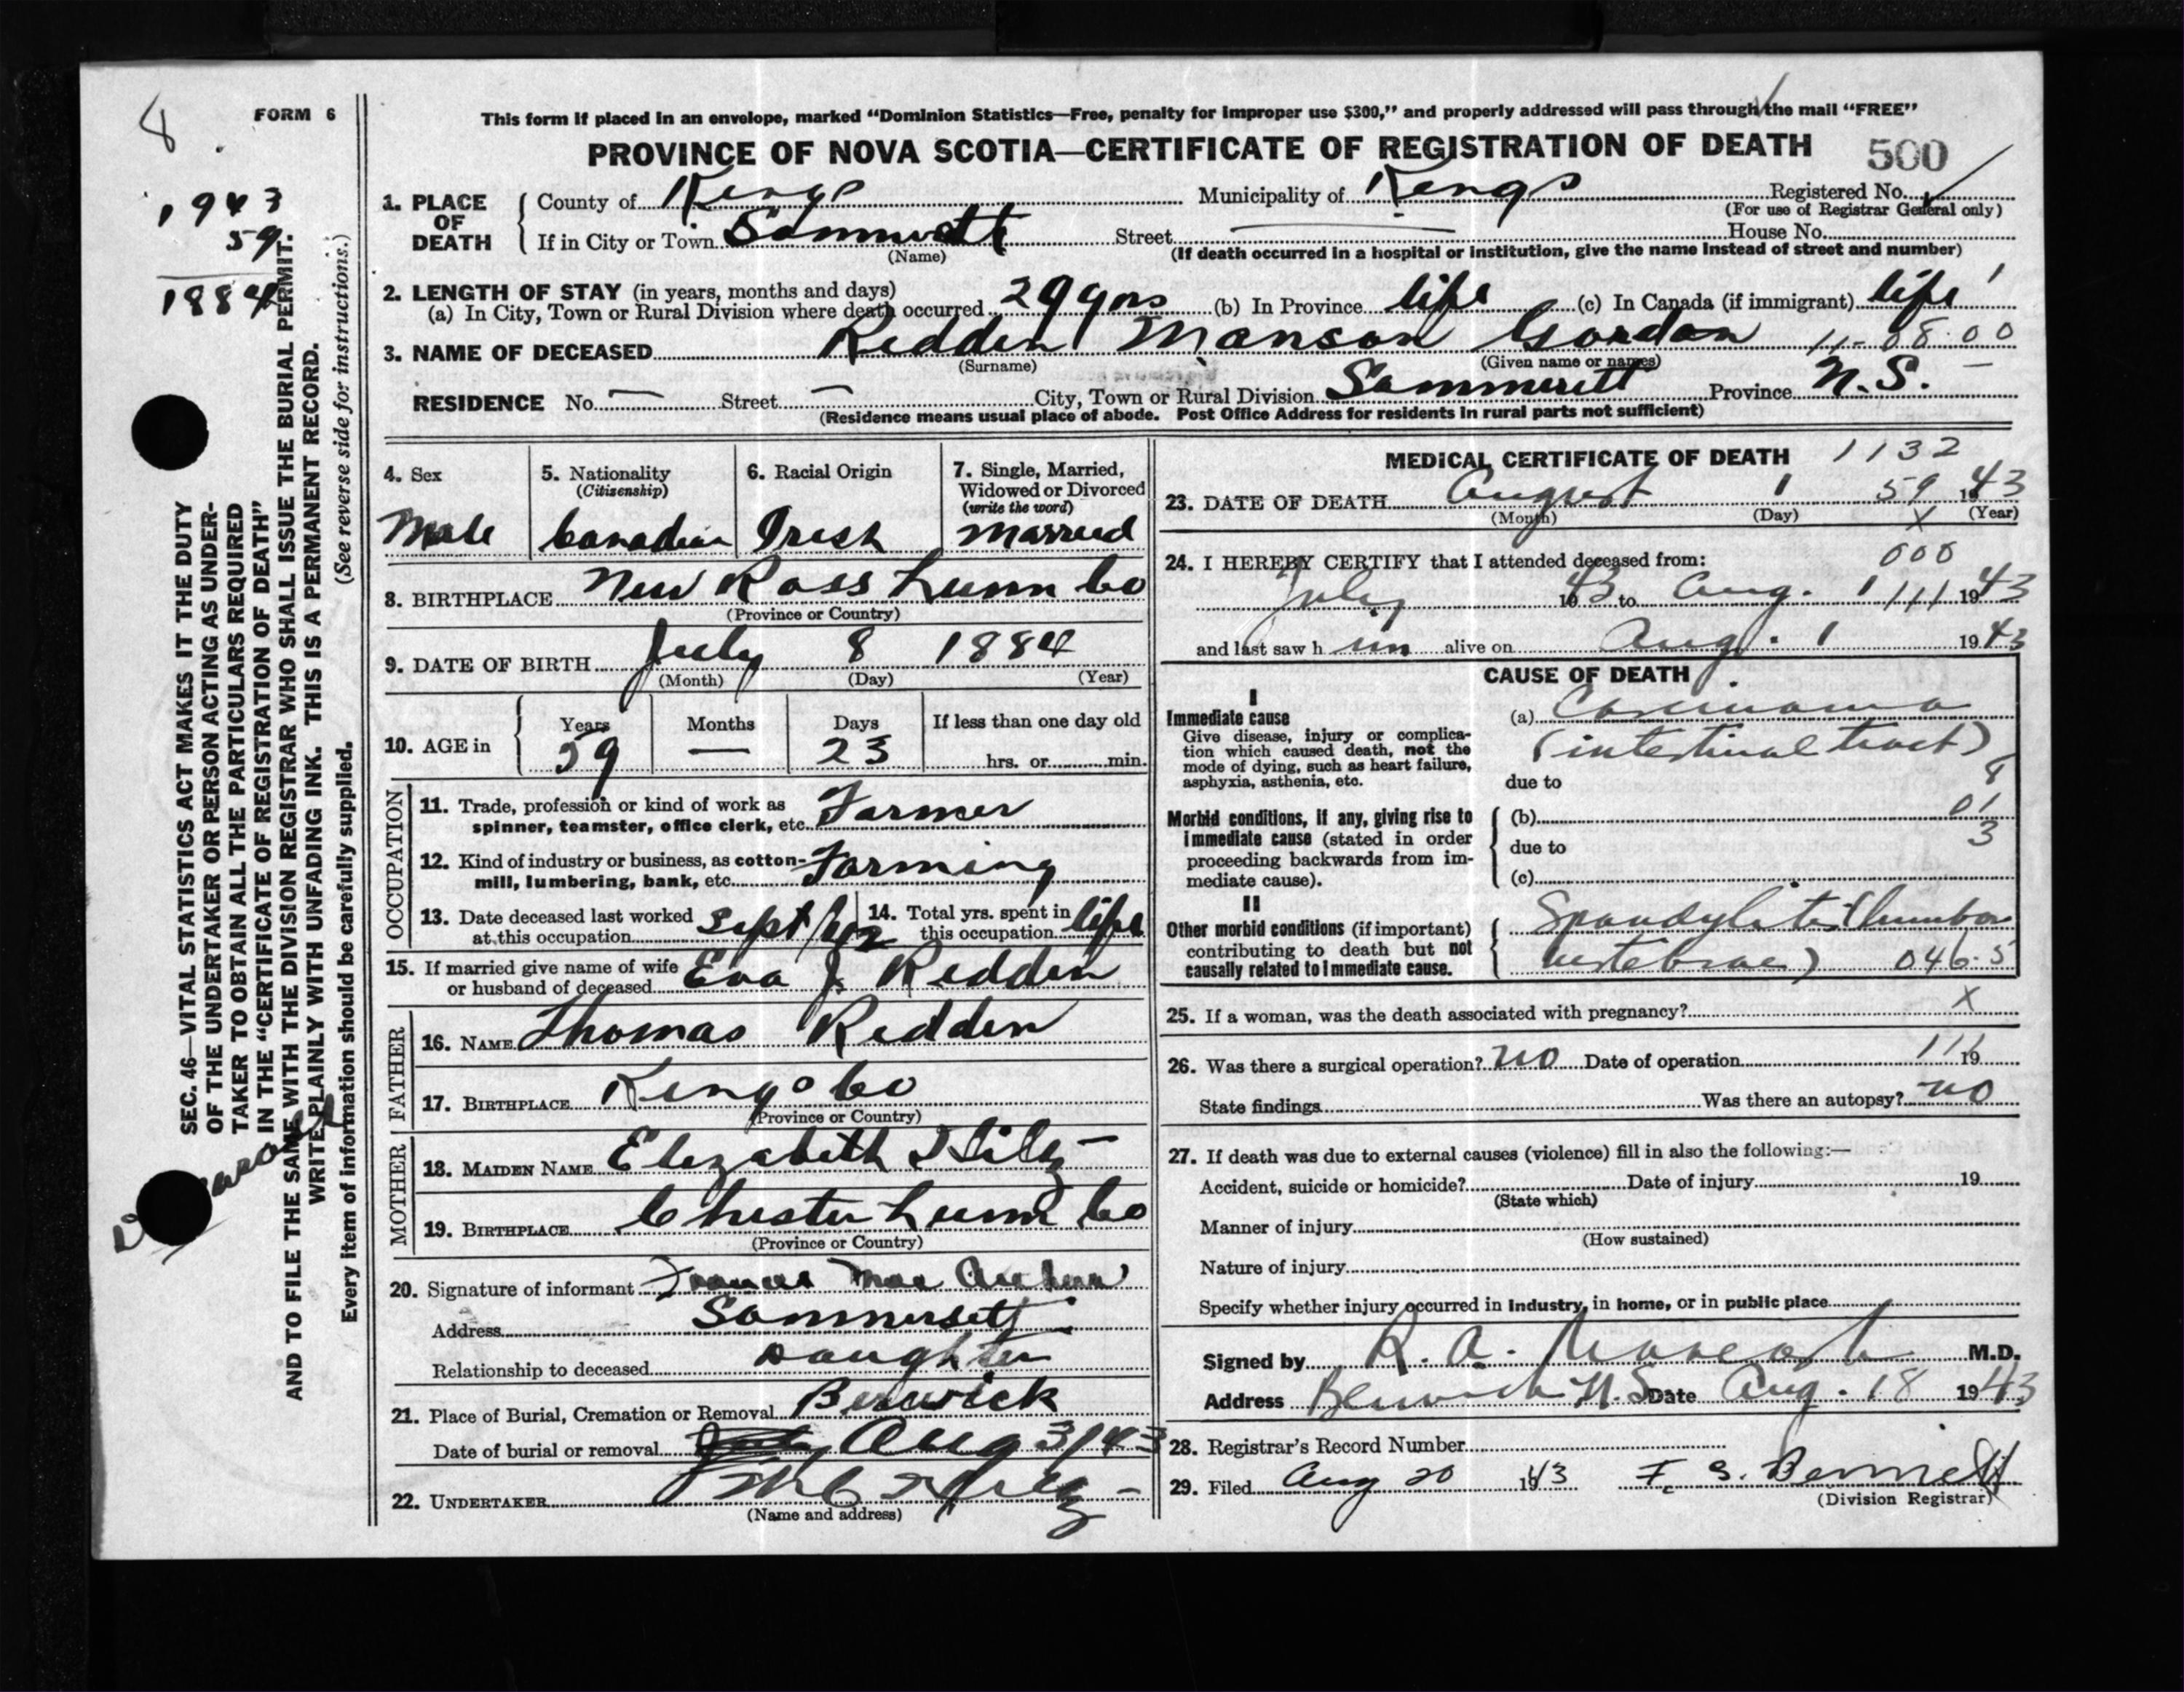 8
FORM 6
1943
59
1884
This form if placed in an envelope, marked “Dominion Statistics—Free, penalty for improper use $300,” and properly addressed will pass through the mail “FREE”
PROVINCE OF NOVA SCOTIA—CERTIFICATE OF REGISTRATION OF DEATH 500
1. PLACE OF DEATH County of Kings Municipality of Kings Registered No.
(For use of Registrar General only)
If in City or Town Street House No.
(Name) (If death occurred in a hospital or institution, give the name instead of street and number)
2. LENGTH OF STAY (in years, months and days)
(a) In City, Town or Rural Division where death occurred 29 yrs (b) In Province life (c) In Canada (if immigrant) life
3. NAME OF DECEASED Redden Manson Gordon 11-08.00
(Surname) (Given name or names)
RESIDENCE No. — Street — City, Town or Rural Division Sommerett Province N.S.
(Residence means usual place of abode. Post Office Address for residents in rural parts not sufficient)
SEC. 46—VITAL STATISTICS ACT MAKES IT THE DUTY
OF THE UNDERTAKER OR PERSON ACTING AS UNDER-
TAKER TO OBTAIN ALL THE PARTICULARS REQUIRED
IN THE “CERTIFICATE OF REGISTRATION OF DEATH”
AND TO FILE THE SAME WITH THE DIVISION REGISTRAR WHO SHALL ISSUE THE BURIAL PERMIT.
WRITE PLAINLY WITH UNFADING INK. THIS IS A PERMANENT RECORD.
Every item of information should be carefully supplied. (See reverse side for instructions.)
4. Sex Male
5. Nationality (Citizenship) Canadian
6. Racial Origin Irish
7. Single, Married, Widowed or Divorced (write the word) Married
8. BIRTHPLACE New Ross Lunn Co
(Province or Country)
9. DATE OF BIRTH July 8 1884
(Month) (Day) (Year)
10. AGE in Years 59 Months — Days 23 If less than one day old hrs. or min.
OCCUPATION
11. Trade, profession or kind of work as spinner, teamster, office clerk, etc. Farmer
12. Kind of industry or business, as cotton-mill, lumbering, bank, etc. Farming
13. Date deceased last worked at this occupation Sept/42 14. Total yrs. spent in this occupation life
15. If married give name of wife or husband of deceased Eva J. Redden
FATHER
16. NAME Thomas Redden
17. BIRTHPLACE Kings Co
(Province or Country)
MOTHER
18. MAIDEN NAME Elizabeth Hiltz
19. BIRTHPLACE Chester Lunn Co
(Province or Country)
20. Signature of informant Frances Mae
Address Sommersett
Relationship to deceased Daughter
21. Place of Burial, Cremation or Removal Berwick
Date of burial or removal Aug 3/43
22. UNDERTAKER
(Name and address)
MEDICAL CERTIFICATE OF DEATH 1132
23. DATE OF DEATH August 1 59 1943
(Month) (Day) X (Year)
24. I HEREBY CERTIFY that I attended deceased from: 000
July 1943 to Aug. 1 111 1943
and last saw him alive on Aug. 1 1943
CAUSE OF DEATH
I
Immediate cause
Give disease, injury or complica-
tion which caused death, not the
mode of dying, such as heart failure,
asphyxia, asthenia, etc.
(a) Carcinoma
(intestinal tract)
due to 8
Morbid conditions, if any, giving rise to
immediate cause (stated in order
proceeding backwards from im-
mediate cause).
(b) 01
due to 3
(c)
II
Other morbid conditions (if important)
contributing to death but not
causally related to immediate cause.
Spondylitis (lumbar
vertebrae) 046.5
25. If a woman, was the death associated with pregnancy? X
26. Was there a surgical operation? no Date of operation 111 19
State findings Was there an autopsy? no
27. If death was due to external causes (violence) fill in also the following:—
Accident, suicide or homicide? Date of injury 19
(State which)
Manner of injury
(How sustained)
Nature of injury
Specify whether injury occurred in industry, in home, or in public place
Signed by R. A. M.D.
Address Berwick N.S. Date Aug. 18 1943
28. Registrar’s Record Number
29. Filed Aug 20 1943 F. S. Bennett
(Division Registrar)